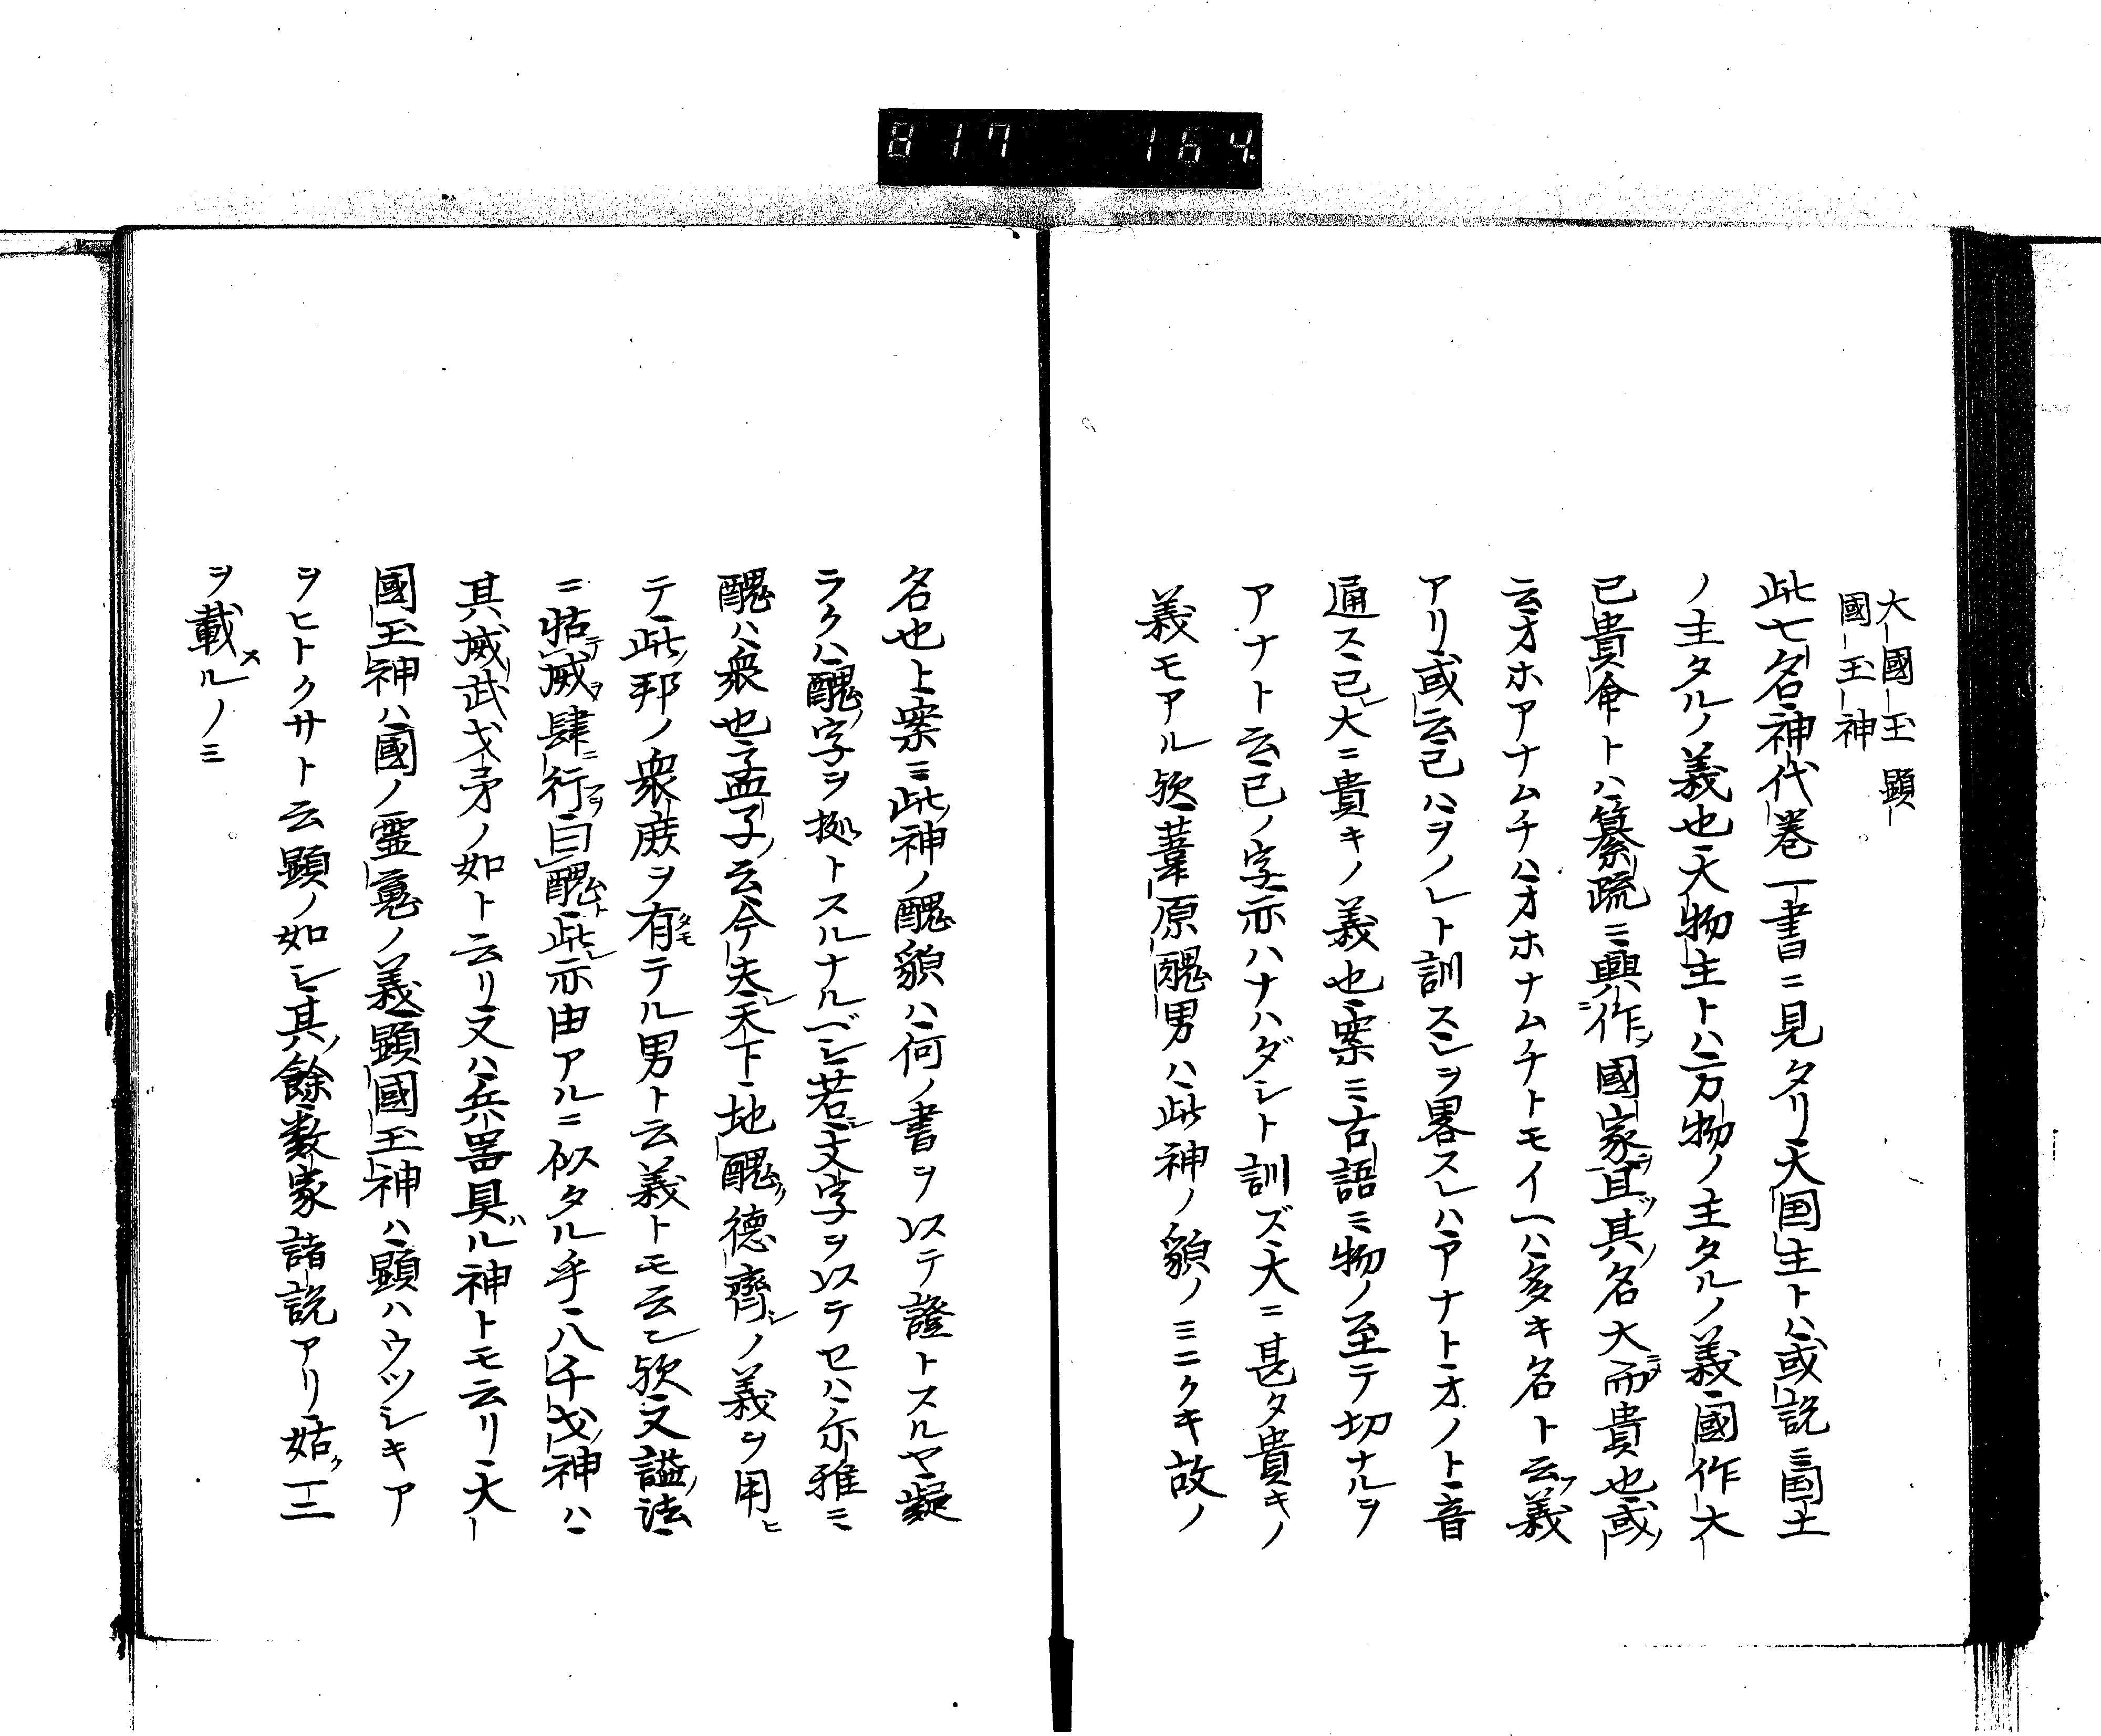 817 164
大國玉顕
國玉神
此七名神代巻一書ニ見タリ大国主トハ或説ニ国土
ノ主タルノ義也大物主トハ万物ノ主タルノ義國作大
已貴命トハ纂疏ニ興作國家且其名大而貴也或
云オホアナムチハオホナムチトモイヘハ多キ名ト云義
アリ或云已ハヲノレト訓スレヲ畧スレハアナトオノト音
通ス已大ニ貴キノ義也案ニ古語ニ物ノ至テ切ナルヲ
アナト云已ノ字亦ハナハダシト訓ズ大ニ甚タ貴キノ
義モアル欤葦原醜男ハ此神ノ貌ノミニクキ故ノ
名也ト案ニ此神ノ醜貌ハ何ノ書ヲ以テ證トスルヤ疑
ラクハ醜字ヲ拠トスルナルベシ若文字ヲ以テセハ尓雅ニ
醜ハ衆也孟子云今夫天下地醜德齊ノ義ヲ用ヒ
テ此邦ノ衆庶ヲ有テル男ト云義トモ云ン欤又謚法
ニ怙威肆行曰醜此亦由アルニ似タル乎八千戈神ハ
其威武戈矛ノ如ト云リ又ハ兵器具ル神トモ云リ大
國玉神ハ國ノ霊䰟ノ義顕國玉神ハ顕ハウツシキア
ヲヒトクサト云顕ノ如シ其餘数家諸説アリ姑一二
ヲ載ルノミ